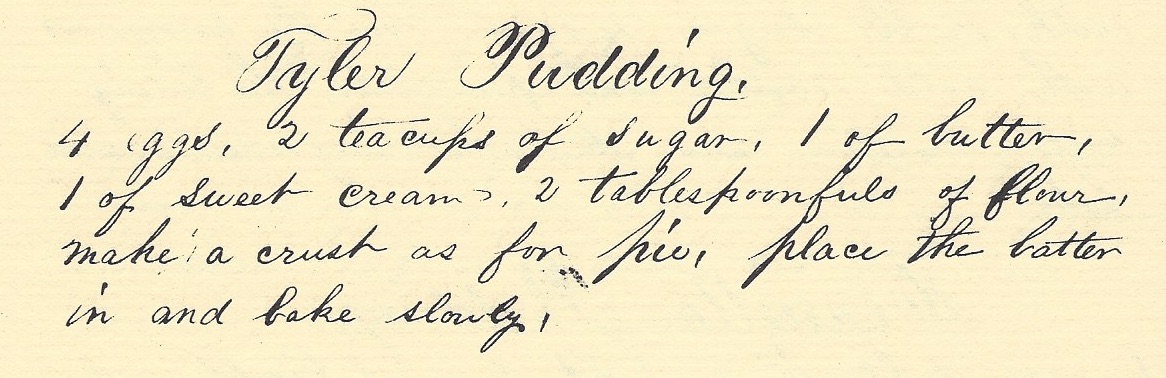 Tyler Pudding.
4 eggs, 2 teacups of sugar, 1 of butter,
1 of sweet cream, 2 tablespoonfuls of flour,
make a crust as for pie, place the batter
in and bake slowly,